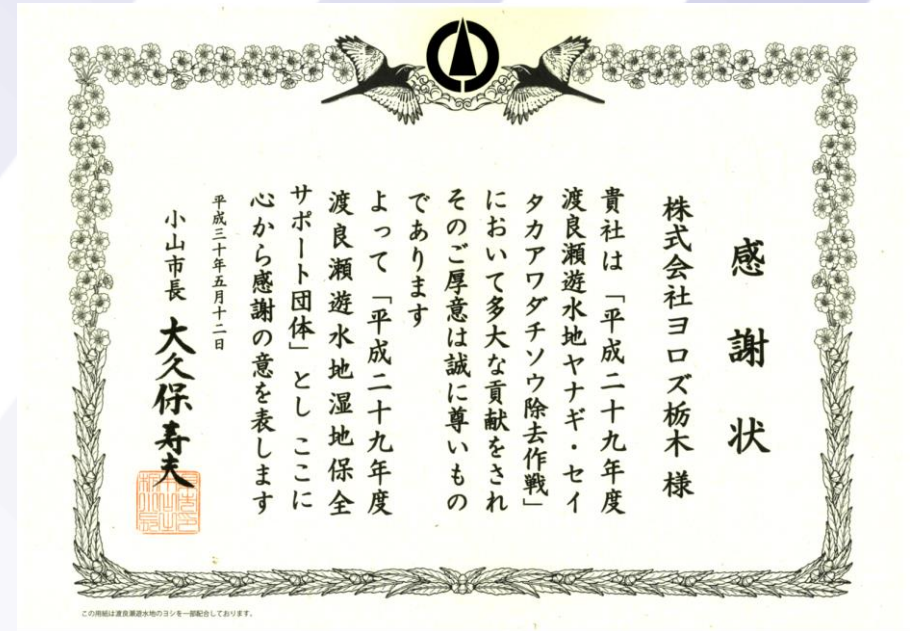 感謝状
株式会社ヨロズ栃木 様
貴社は「平成二十九年度
渡良瀬遊水地ヤナギ・セイ
タカアワダチソウ除去作戦」
において多大な貢献をされ
そのご厚意は誠に尊いもの
であります
よって「平成二十九年度
渡良瀬遊水地湿地保全
サポート団体」とし ここに
心から感謝の意を表します
平成三十年五月十二日
小山市長 大久保寿夫
この用紙は渡良瀬遊水地のヨシを一部配合しております。